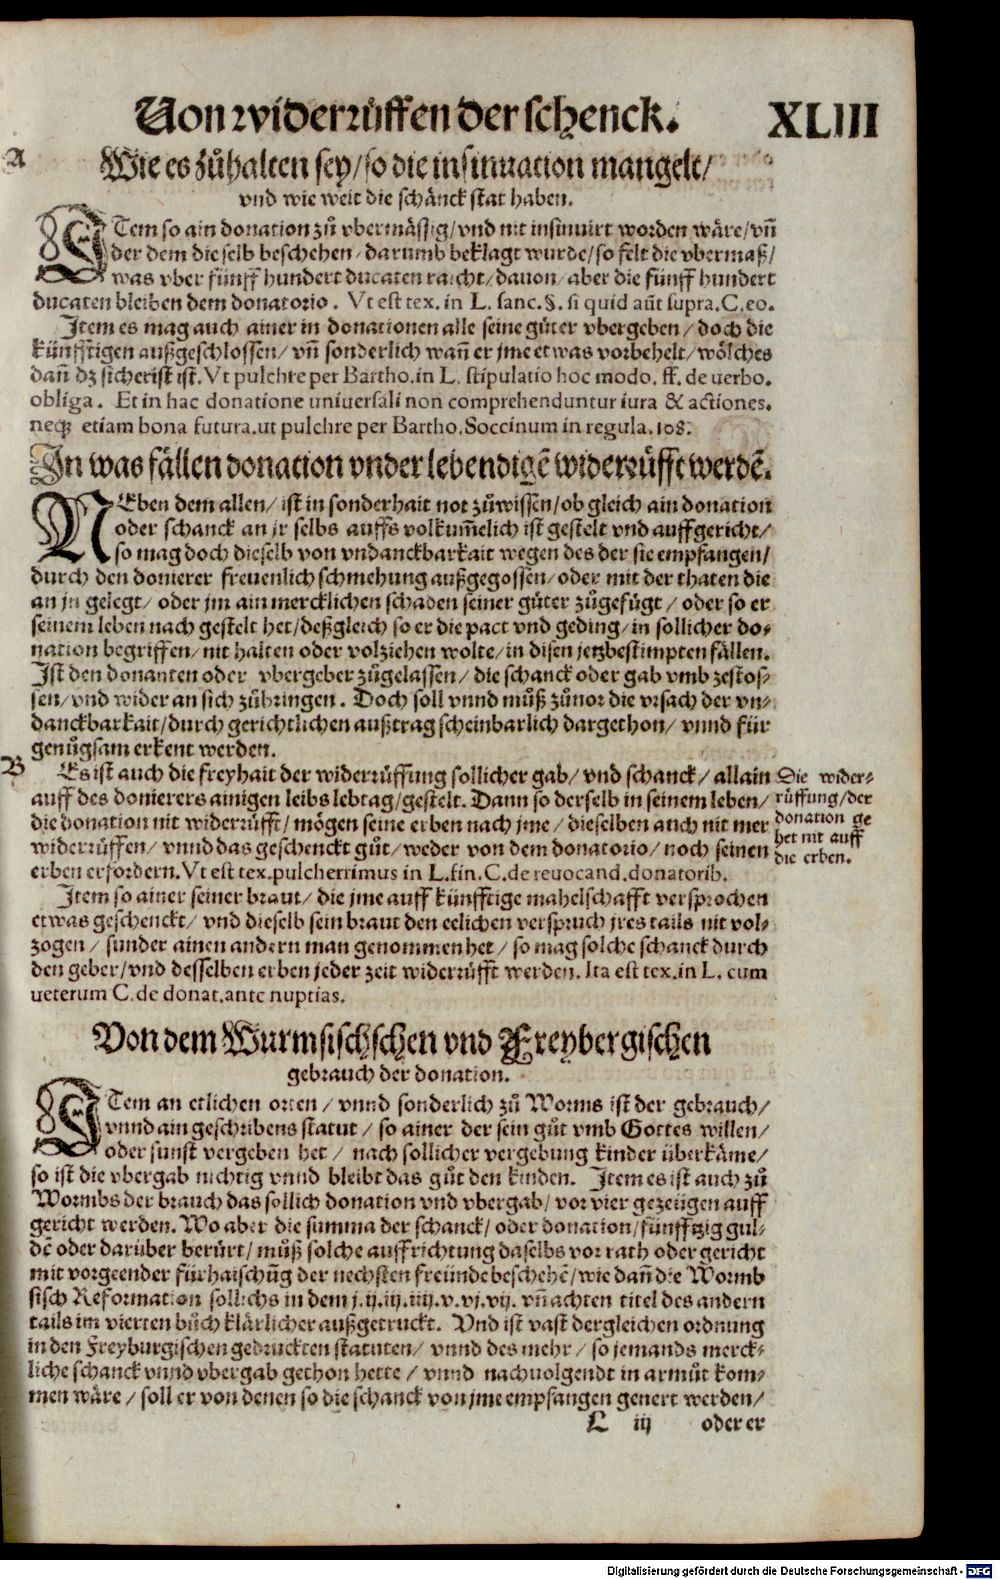 Von widerrůffen der schenck. XLIII
A
Wie es zůhalten sey/ so die insinuation mangelt/
vnd wie weit die schänck stat haben.
ITem so ain donation zů vbermässig/ vnd nit insinuirt worden wäre/ vñ
der dem die selb beschehen/ darumb beklagt wurde/ so felt die vbermaß/
was vber fünff hundert ducaten raicht/ dauon/ aber die fünff hundert
ducaten bleiben dem donatorio. Vt est tex. in L. sanc.§. si quid aũt supra.C.eo.
Item es mag auch ainer in donationen alle seine gůter vbergeben/ doch die
künfftigen außgeschlossen/ vñ sonderlich wañ er jme etwas vorbehelt/ wölches
dañ dz sicherist ist. Vt pulchre per Bartho. in L. stipulatio hoc modo. ff. de verbo.
obliga. Et in hac donatione uniuersali non comprehenduntur iura & actiones.
neqꝫ etiam bona futura.ut pulchre per Bartho.Soccinum in regula.108.
In was fällen donation vnder lebendigẽ widerrüfft werdẽ.
NEben dem allen/ ist in sonderhait not zůwissen/ ob gleich ain donation
oder schanck an jr selbs auffs volkum̃elich ist gestelt vnd auffgericht/
so mag doch dieselb von vndanckbarkait wegen des der sie empfangen/
durch den donierer freuenlich schmehung außgegossen/ oder mit der thaten die
an jn gelegt/ oder jm ain mercklichen schaden seiner gůter zůgefügt/ oder so er
seinem leben nach gestelt het/ deßgleich so er die pact vnd geding/ in sollicher do⸗
nation begriffen/ nit halten oder volziehen wolte/ in disen jetzbestimpten fällen.
Ist den donanten oder vbergeber zůgelassen/ die schanck oder gab vmb zestos⸗
sen/ vnd wider an sich zůbringen. Doch soll vnnd můß zůuor die vrsach der vn⸗
danckbarkait/ durch gerichtlichen außtrag scheinbarlich dargethon/ vnnd für
genůgsam erkent werden.
B
Es ist auch die freyhait der widerrüffung sollicher gab/ vnd schanck/ allain
auff des donierers ainigen leibs lebtag/ gestelt. Dann so derselb in seinem leben/
die donation nit widerrüfft/ mögen seine erben nach jme/ dieselben auch nit mer
widerrüffen/ vnnd das geschenckt gůt/ weder von dem donatorio/ noch seinen
erben erfordern. Vt est tex.pulcherrimus in L.fin.C.de reuocand.donatorib.
Die wider⸗
rüffung/der
donation ge
het nit auff
die erben.
Item so ainer seiner braut/ die jme auff künfftige mahelschafft versprochen
etwas geschenckt/ vnd dieselb sein braut den eelichen verspruch jres tails nit vol⸗
zogen/ sunder ainen andern man genommen het/ so mag solche schanck durch
den geber/ vnd desselben erben jeder zeit widerrüfft werden. Ita est tex.in L. cum
ueterum C.de donat.ante nuptias.
Von dem Wurmsischschen vnd Freybergischen
gebrauch der donation.
ITem an etlichen orten/ vnnd sonderlich zů Worms ist der gebrauch/
vnnd ain geschribens statut/ so ainer der sein gůt vmb Gottes willen/
oder sunst vergeben het/ nach sollicher vergebung kinder überkäme/
so ist die vbergab nichtig vnnd bleibt das gůt den kinden. Item es ist auch zů
Wormbs der brauch das sollich donation vnd vbergab/ vor vier gezeügen auff
gericht werden. Wo aber die summa der schanck/ oder donation/ fünfftzig gul⸗
dẽ oder darüber berürt/ můß solche auffrichtung daselbs vor rath oder gericht
mit vorgeender fürhaischũg der nechsten freünde beschehẽ/ wie dañ die Wormb
sisch Reformation sollichs in dem j.ij.iij.iiij.v.vj.vij. vñ achten titel des andern
tails im vierten bůch klärlicher außgetruckt. Vnd ist vast dergleichen ordnung
in den Freyburgischen gedruckten statuten/ vnnd des mehr/ so jemands merck⸗
liche schanck vnnd vbergab gethon hette/ vnnd nachuolgendt in armůt kom⸗
men wäre/ soll er von denen so die schanck von jme empfangen genert werden/
L iij oder er
Digitalisierung gefördert durch die Deutsche Forschungsgemeinschaft - DFG